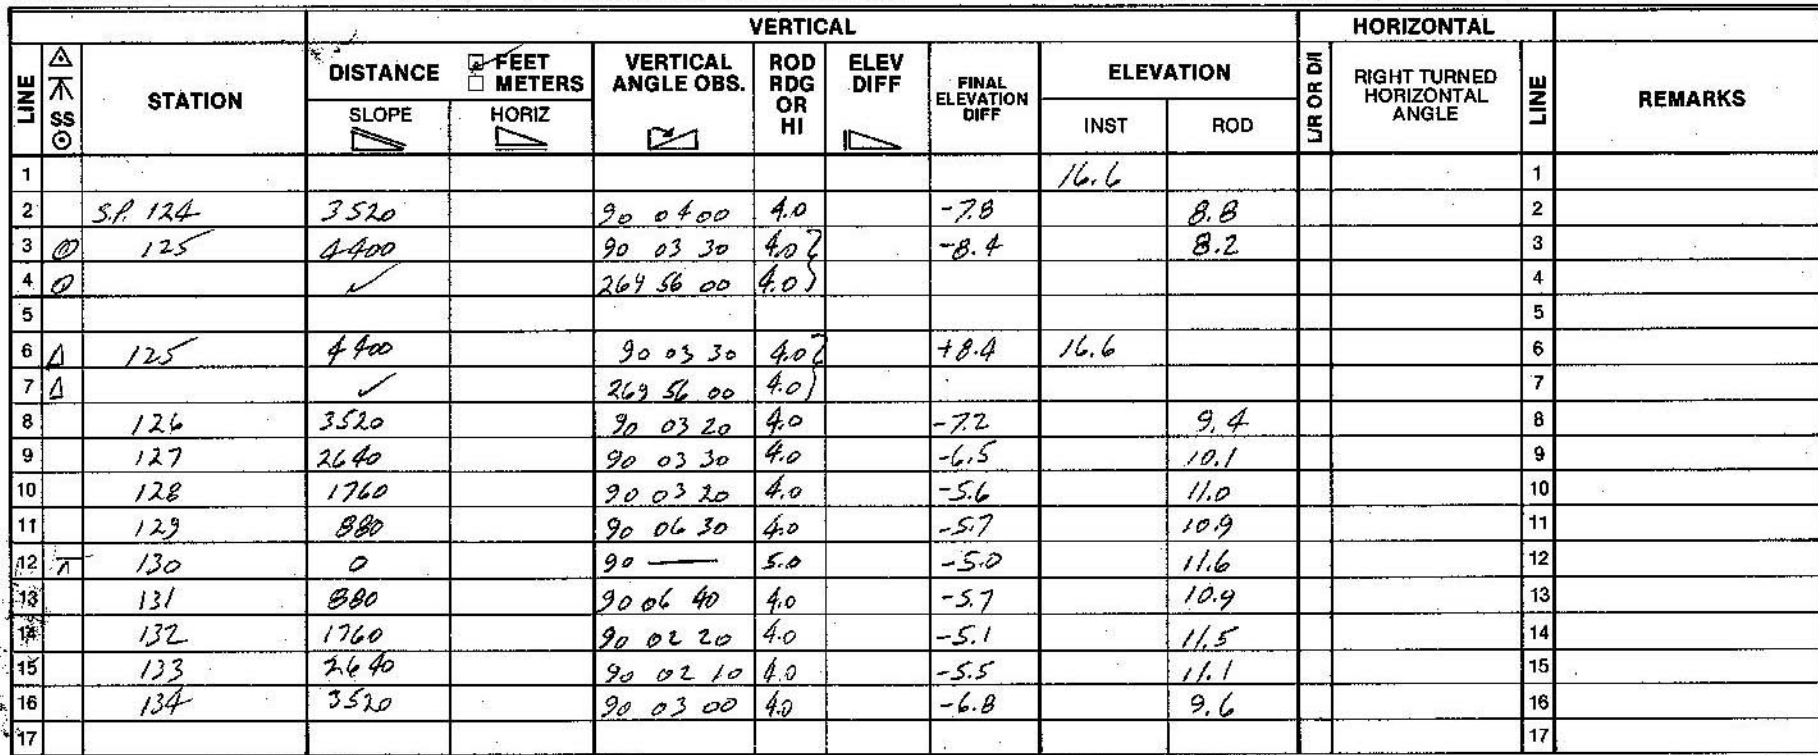 VERTICAL HORIZONTAL
LINE SS STATION DISTANCE FEET METERS SLOPE HORIZ VERTICAL ANGLE OBS. ROD RDG OR HI ELEV DIFF FINAL ELEVATION DIFF ELEVATION INST ROD L/R OR D/I RIGHT TURNED HORIZONTAL ANGLE LINE REMARKS
1 16.6 1
2 S.P. 124 3520 90 04 00 4.0 -7.8 8.8 2
3 125 4400 90 03 30 4.0 -8.4 8.2 3
4 ✓ 269 56 00 4.0 4
5 5
6 125 4400 90 03 30 4.0 +8.4 16.6 6
7 ✓ 269 56 00 4.0 7
8 126 3520 90 03 20 4.0 -7.2 9.4 8
9 127 2640 90 03 30 4.0 -6.5 10.1 9
10 128 1760 90 03 20 4.0 -5.6 11.0 10
11 129 880 90 06 30 4.0 -5.7 10.9 11
12 130 0 90 — 5.0 -5.0 11.6 12
13 131 880 90 06 40 4.0 -5.7 10.9 13
14 132 1760 90 02 20 4.0 -5.1 11.5 14
15 133 2640 90 02 10 4.0 -5.5 11.1 15
16 134 3520 90 03 00 4.0 -6.8 9.6 16
17 17